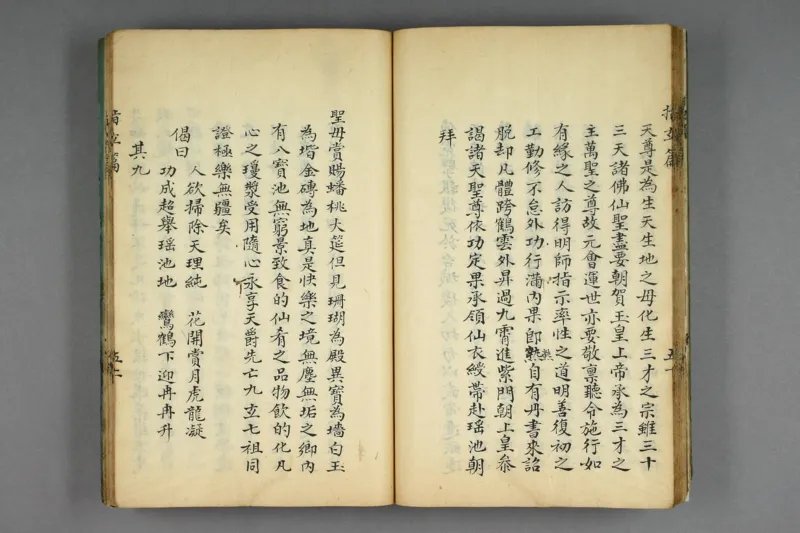 天尊是為生天生地之母化生三才之宗雖三十
三天諸佛仙聖盡要朝賀玉皇上帝承為三才之
主萬聖之尊故元會運世亦要敬稟聽令施行如
有緣之人訪得明師指示率性之道明善復初之
工勤修不怠外功行滿內果即熟自有丹書來詔
脫却凡體跨鶴雲外昇過九霄進紫門朝上皇參
謁諸天聖尊依功定果承領仙衣綬帶赴瑶池朝
拜
聖母賞賜蟠桃大筵但見珊瑚為殿異寶為墻白玉
為堦金磚為地真是快樂之境無塵無垢之鄉內
有八寶池無窮景致食的仙肴之品物飲的化凡
心之瓊漿受用隨心永享天爵先亡九玄七祖同
證極樂無疆矣
偈曰 人欲掃除天理純 花開賞月虎龍凝
功成超舉瑶池地 鸞鶴下迎冉冉升
其九